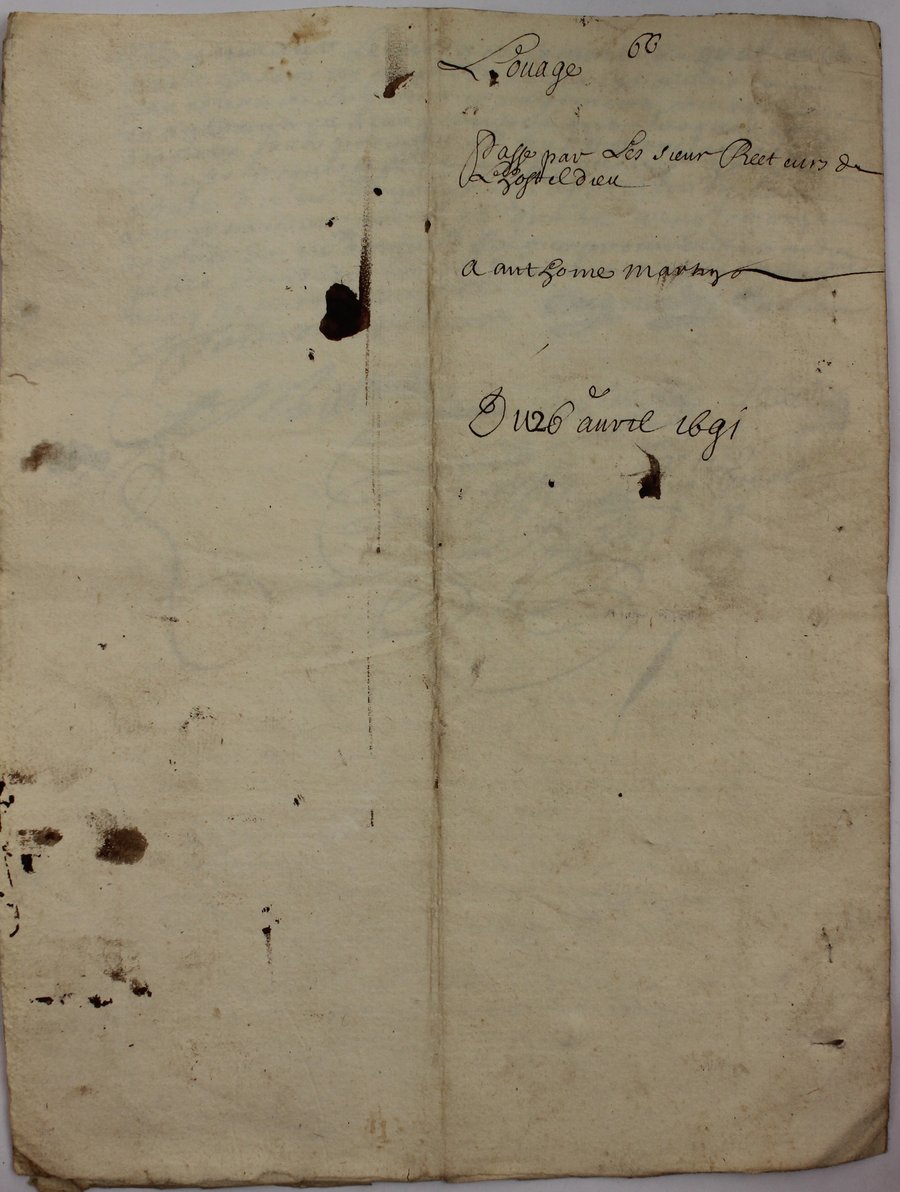 Louage 66
Passe par Les sieur Recteurs de
Lhosteldieu
a anthoine martin
Du 26 auvril 1691